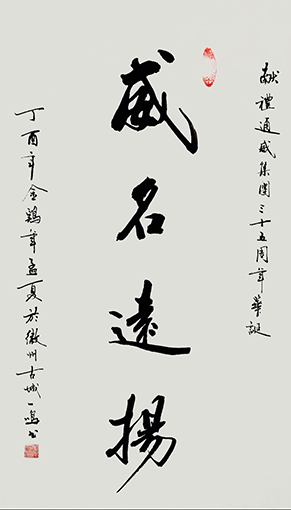 獻禮通威集團三十五周年華誕
威名遠揚
丁酉年金鷄年孟夏於徽州古城一鳴书